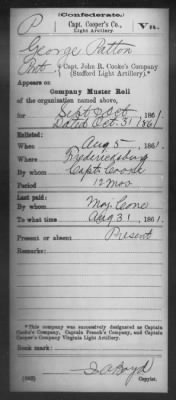 (Confederate.)
P Capt. Cooper's Co., Va.
Light Artillery.
George Patton
Pvt., Capt. John R. Cooke's Company
(Stafford Light Artillery).*
Appears on
Company Muster Roll
of the organization named above,
for Sept & Oct, 1861.
Dated Oct. 31, 1861
Enlisted:
When Aug 5, 1861.
Where Fredericksburg
By whom Capt. Cooke
Period 12 mos.
Last paid:
By whom Maj. Cone
To what time Aug 31, 1861.
Present or absent Present
Remarks:
*This company was successively designated as Captain
Cooke's Company, Captain French's Company, and Captain
Cooper's Company Virginia Light Artillery.
Book mark:
Boyd
Copyist.